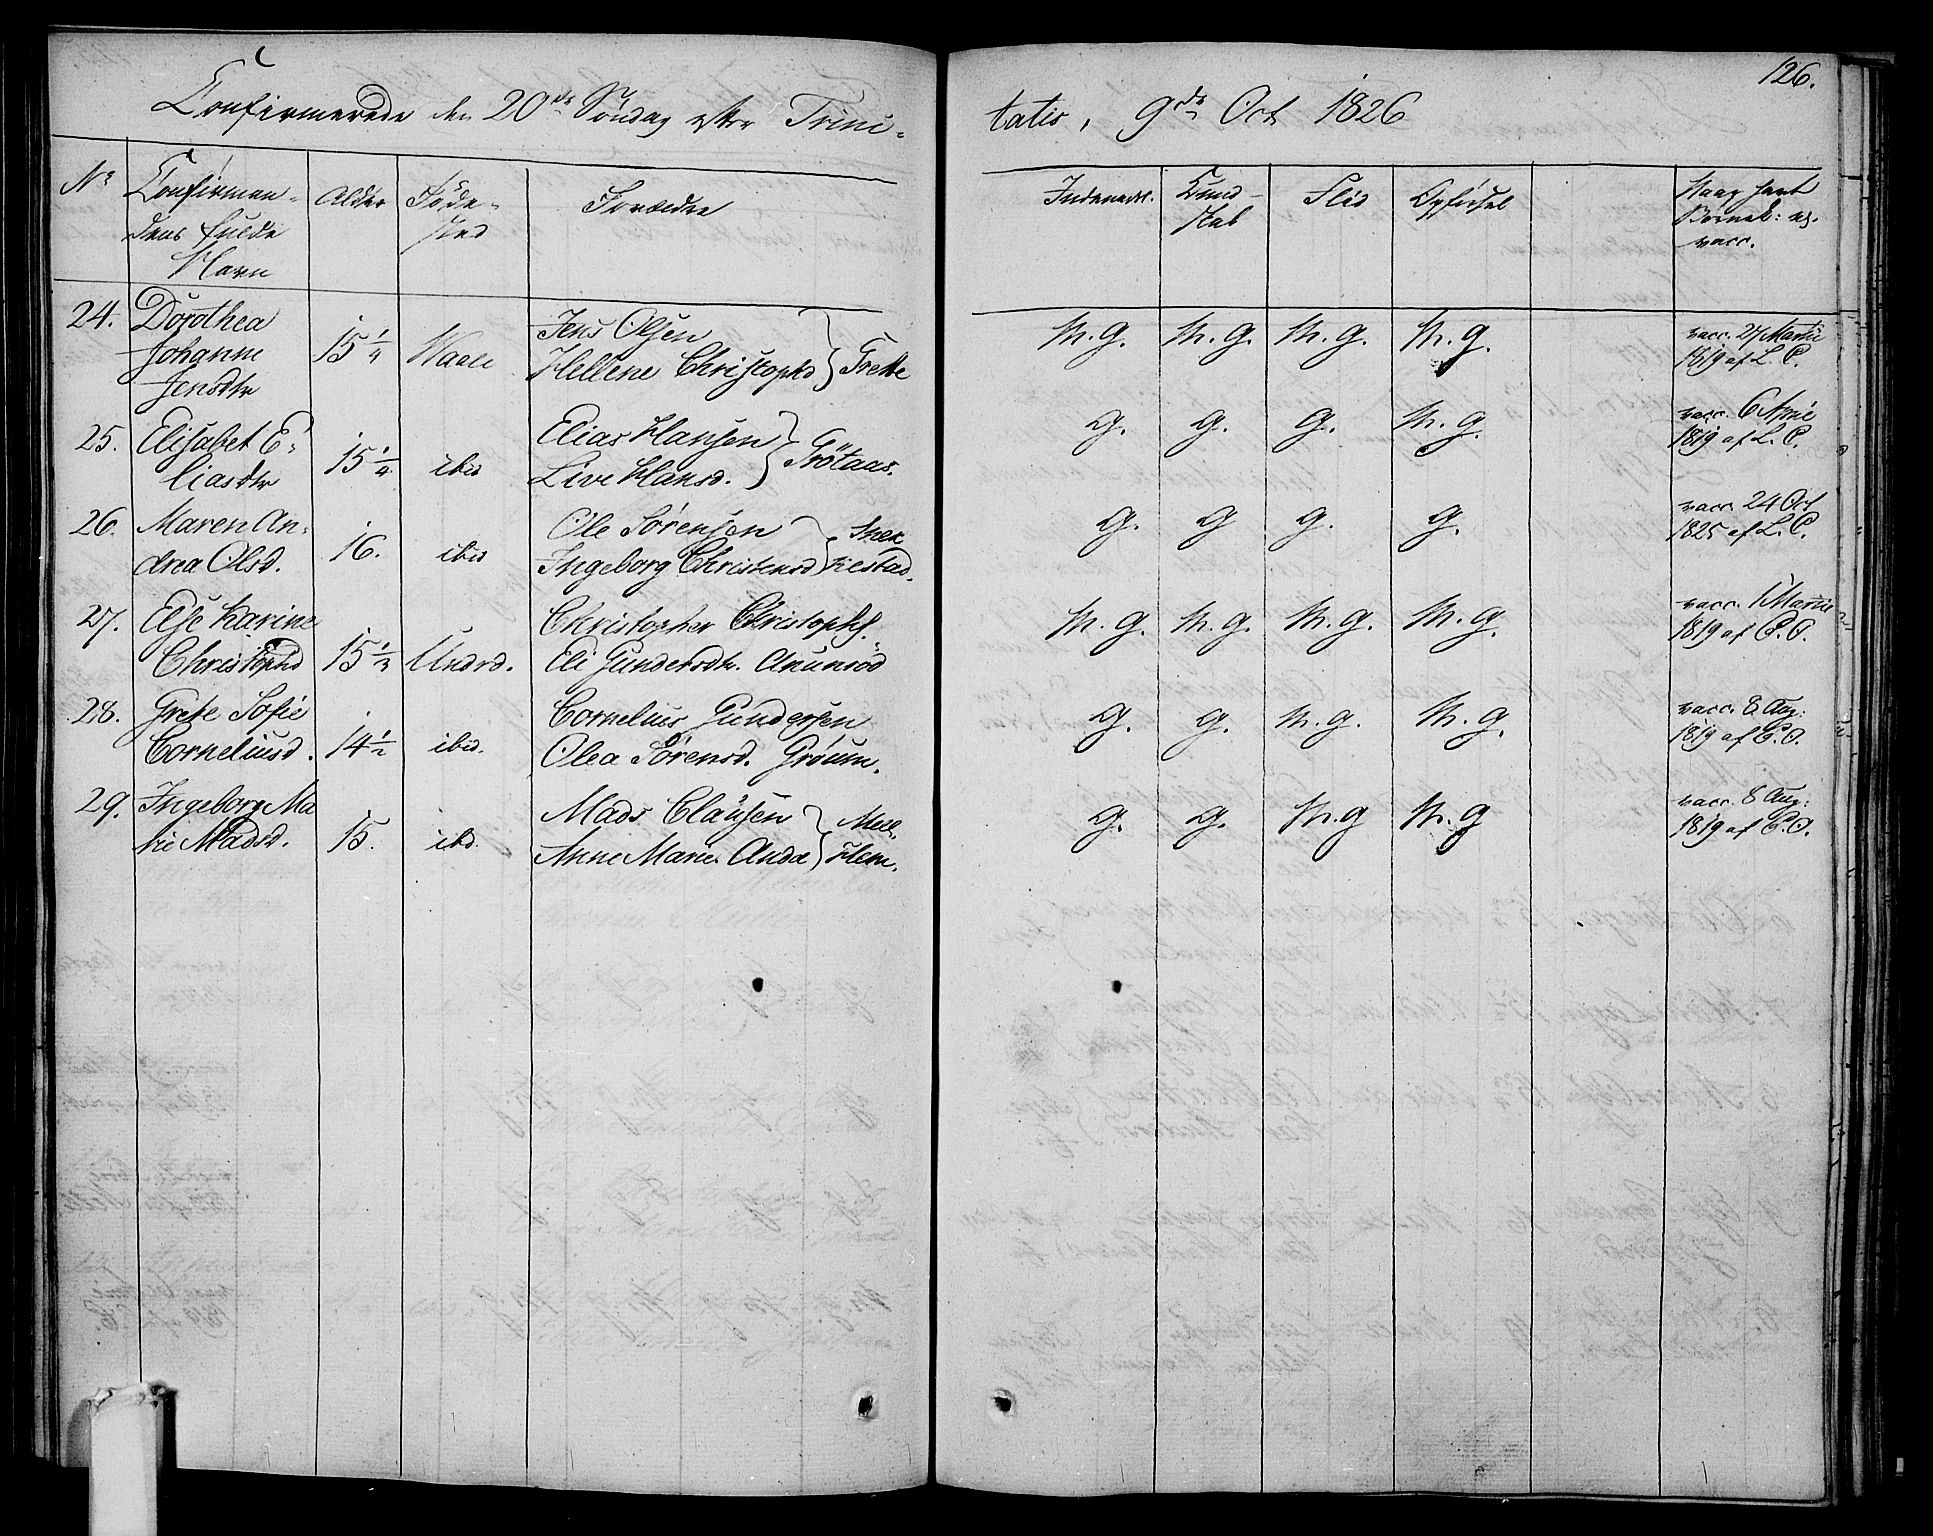 126.
Confirmerede den 20de Søndag efter Trini-
tatis, 9de Oct 1826
No
Confirman-
dens fulde
Navn
Alder
Føde-
sted
Forældre
Indenadl.
Kund-
skab
Flid
Opførsel
Naar havt
Børnek: el.
vacc.
24. Dorothea
Johanne
Jensdtr
15 1/4
Waale
Jens Olsen
Hellene Christophd } Trette
M. G. M. G. M. G. M. G.
vacc. 24 Martii
1819 af L. C.
25. Elisabet E-
liasdtr
15 1/4
ibid
Elias Hansen
Live Hansd. } Grötaas.
G. G. G. M. G.
vacc. 6 April
1819 af L. C.
26. Maren An-
drea Olsd.
16.
ibid
Ole Sørensen
Ingeborg Christensd } Snek
kestad.
G. G G. G.
vacc. 24 Oct
1825 af L. C.
27. Else Karine
Christophd
15 1/2
Undrd.
Christopher Christophs.
Eli Gundersdtr. Anunröd
M. G. M. G. M. G. M. G.
vacc. 1 Martii
1819 af C. O.
28. Grete Sofie
Corneliusd.
14 1/2
ibid.
Cornelius Gundersen
Olea Sørensd. Gröum.
G. G. M. G. M. G.
vacc. 8 Aug:
1819 af C. O.
29. Ingeborg Ma
rie Madsd.
15.
ibd.
Mads Clausen
Anne Marie Andd } Mell
Hem.
G. G. M. G M. G
vacc. 8 Aug:
1819 af C. O.